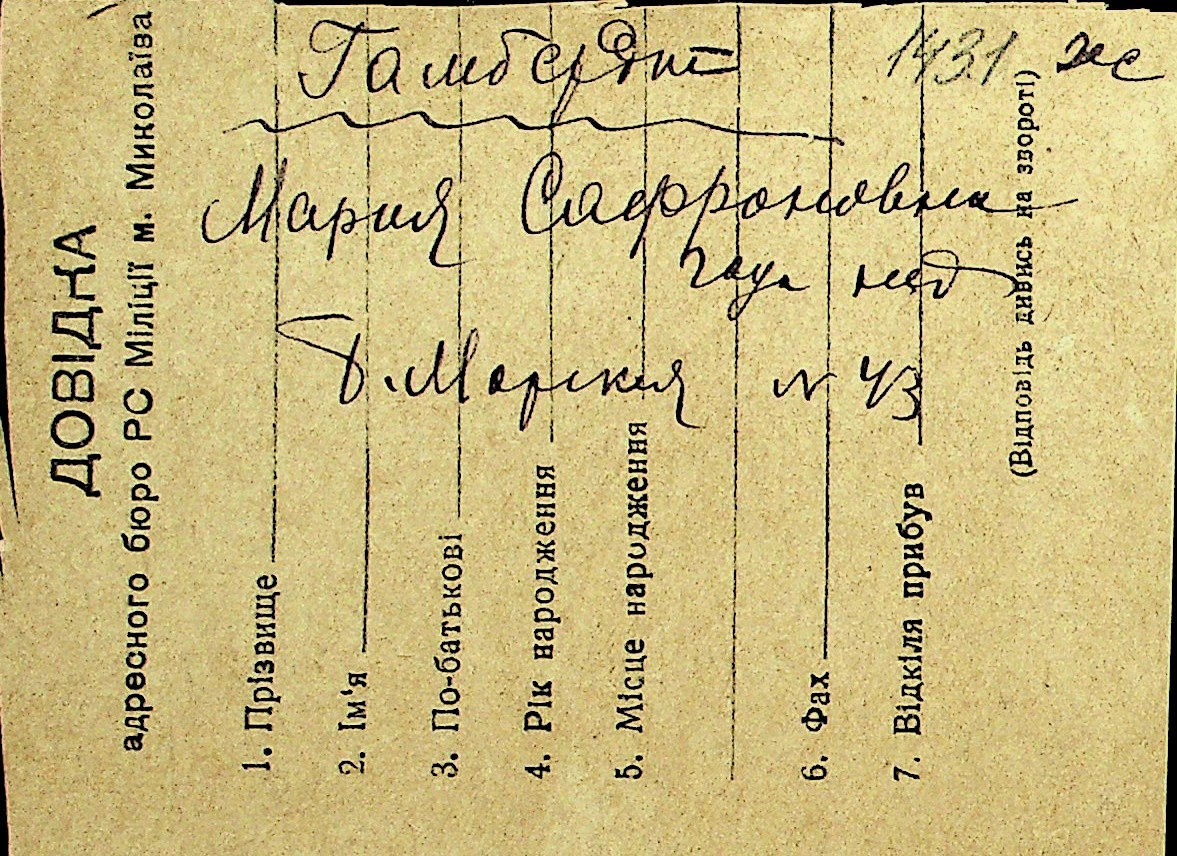 ДОВІДКА
адресного бюро РС Міліції м. Миколаїва
1. Прізвище
2. Ім'я
3. По-батькові
4. Рік народження
5. Місце народження
6. Фах
7. Відкіля прибув
(Відповідь дивись на звороті)
1431
Мария Сафроновна
Б. Морская N 43